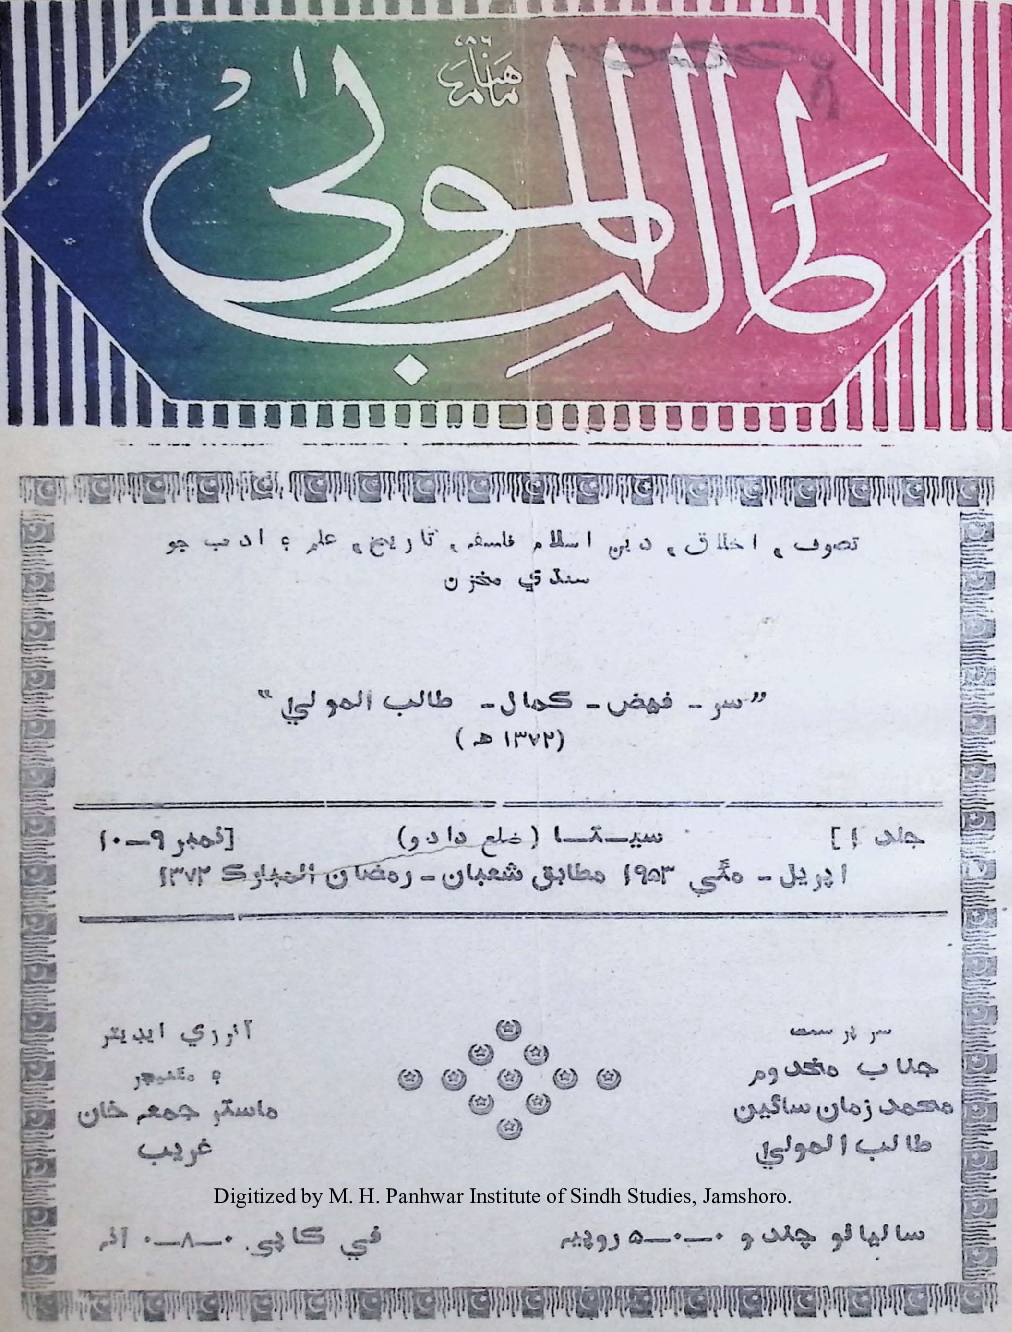 ۷۸۶
ماهنامه
طالب المولىٰ
تصوف، اخلاق، دين اسلام فلسفه، تاريخ، علم ۽ ادب جو
سنڌي مخزن
”سر - فيض - ڪمال - طالب المولىٰ“
(۱۳۷۲ هه)
جلد ۱] سيـتـا (ضلع دادو) [نمبر ۹-۱۰
اپريل - مئي ۱۹۵۳ مطابق شعبان - رمضان المبارڪ ۱۳۷۲
سرپرست
جناب مخدوم
محمد زمان سائين
طالب المولىٰ
آنرري ايڊيٽر
۽ مئنيجر
ماستر جمعہ خان
غريب
Digitized by M. H. Panhwar Institute of Sindh Studies, Jamshoro.
ساليانو چندو ۰-۰-۵ روپيه في ڪاپي ۰-۸-۰ آنه